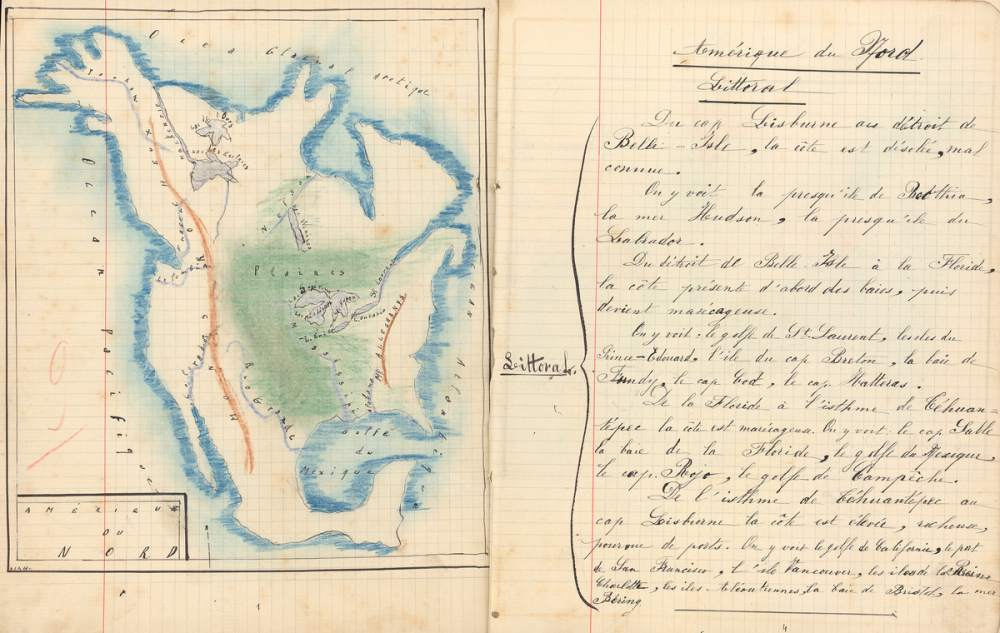 Océan Glacial arctique
Océan Pacifique
Océan Atlantique
Plaines
Golfe
du
Mexique
Rio Grande
St Laurent
Ontario
AMÉRIQUE
DU
NORD
Amérique du Nord
Littoral
Du cap Lisburne au détroit de
Belle-Isle, la côte est désolée, mal
connue.
On y voit la presqu'île de Boothia,
la mer Hudson, la presqu'île du
Labrador.
Du détroit de Belle Isle à la Floride,
la côte présent d'abord des baies, puis
devient marécageuse.
On y voit: le golfe de St. Laurent, les iles du
Prince-Edouard, l'île du cap Breton, la baie de
Fundy, le cap Cod, le cap Hatteras.
Littoral.
De la Floride à l'isthme de Téhuan-
tépec la côte est marécageuse. On y voit: le cap Sable
la baie de la Floride, le golfe du Mexique,
le cap Rojo, le golfe de Campêche.
De l'isthme de Téhuantépec au
cap Lisburne la côte est élevée, rocheuse,
pourvue de ports. On y voit le golfe de Californie, le port
de San Francisco, l'île Vancouver, les iles de la Reine
Charlotte, les iles Aléoutiennes, la baie de Bristol, la mer
Béring